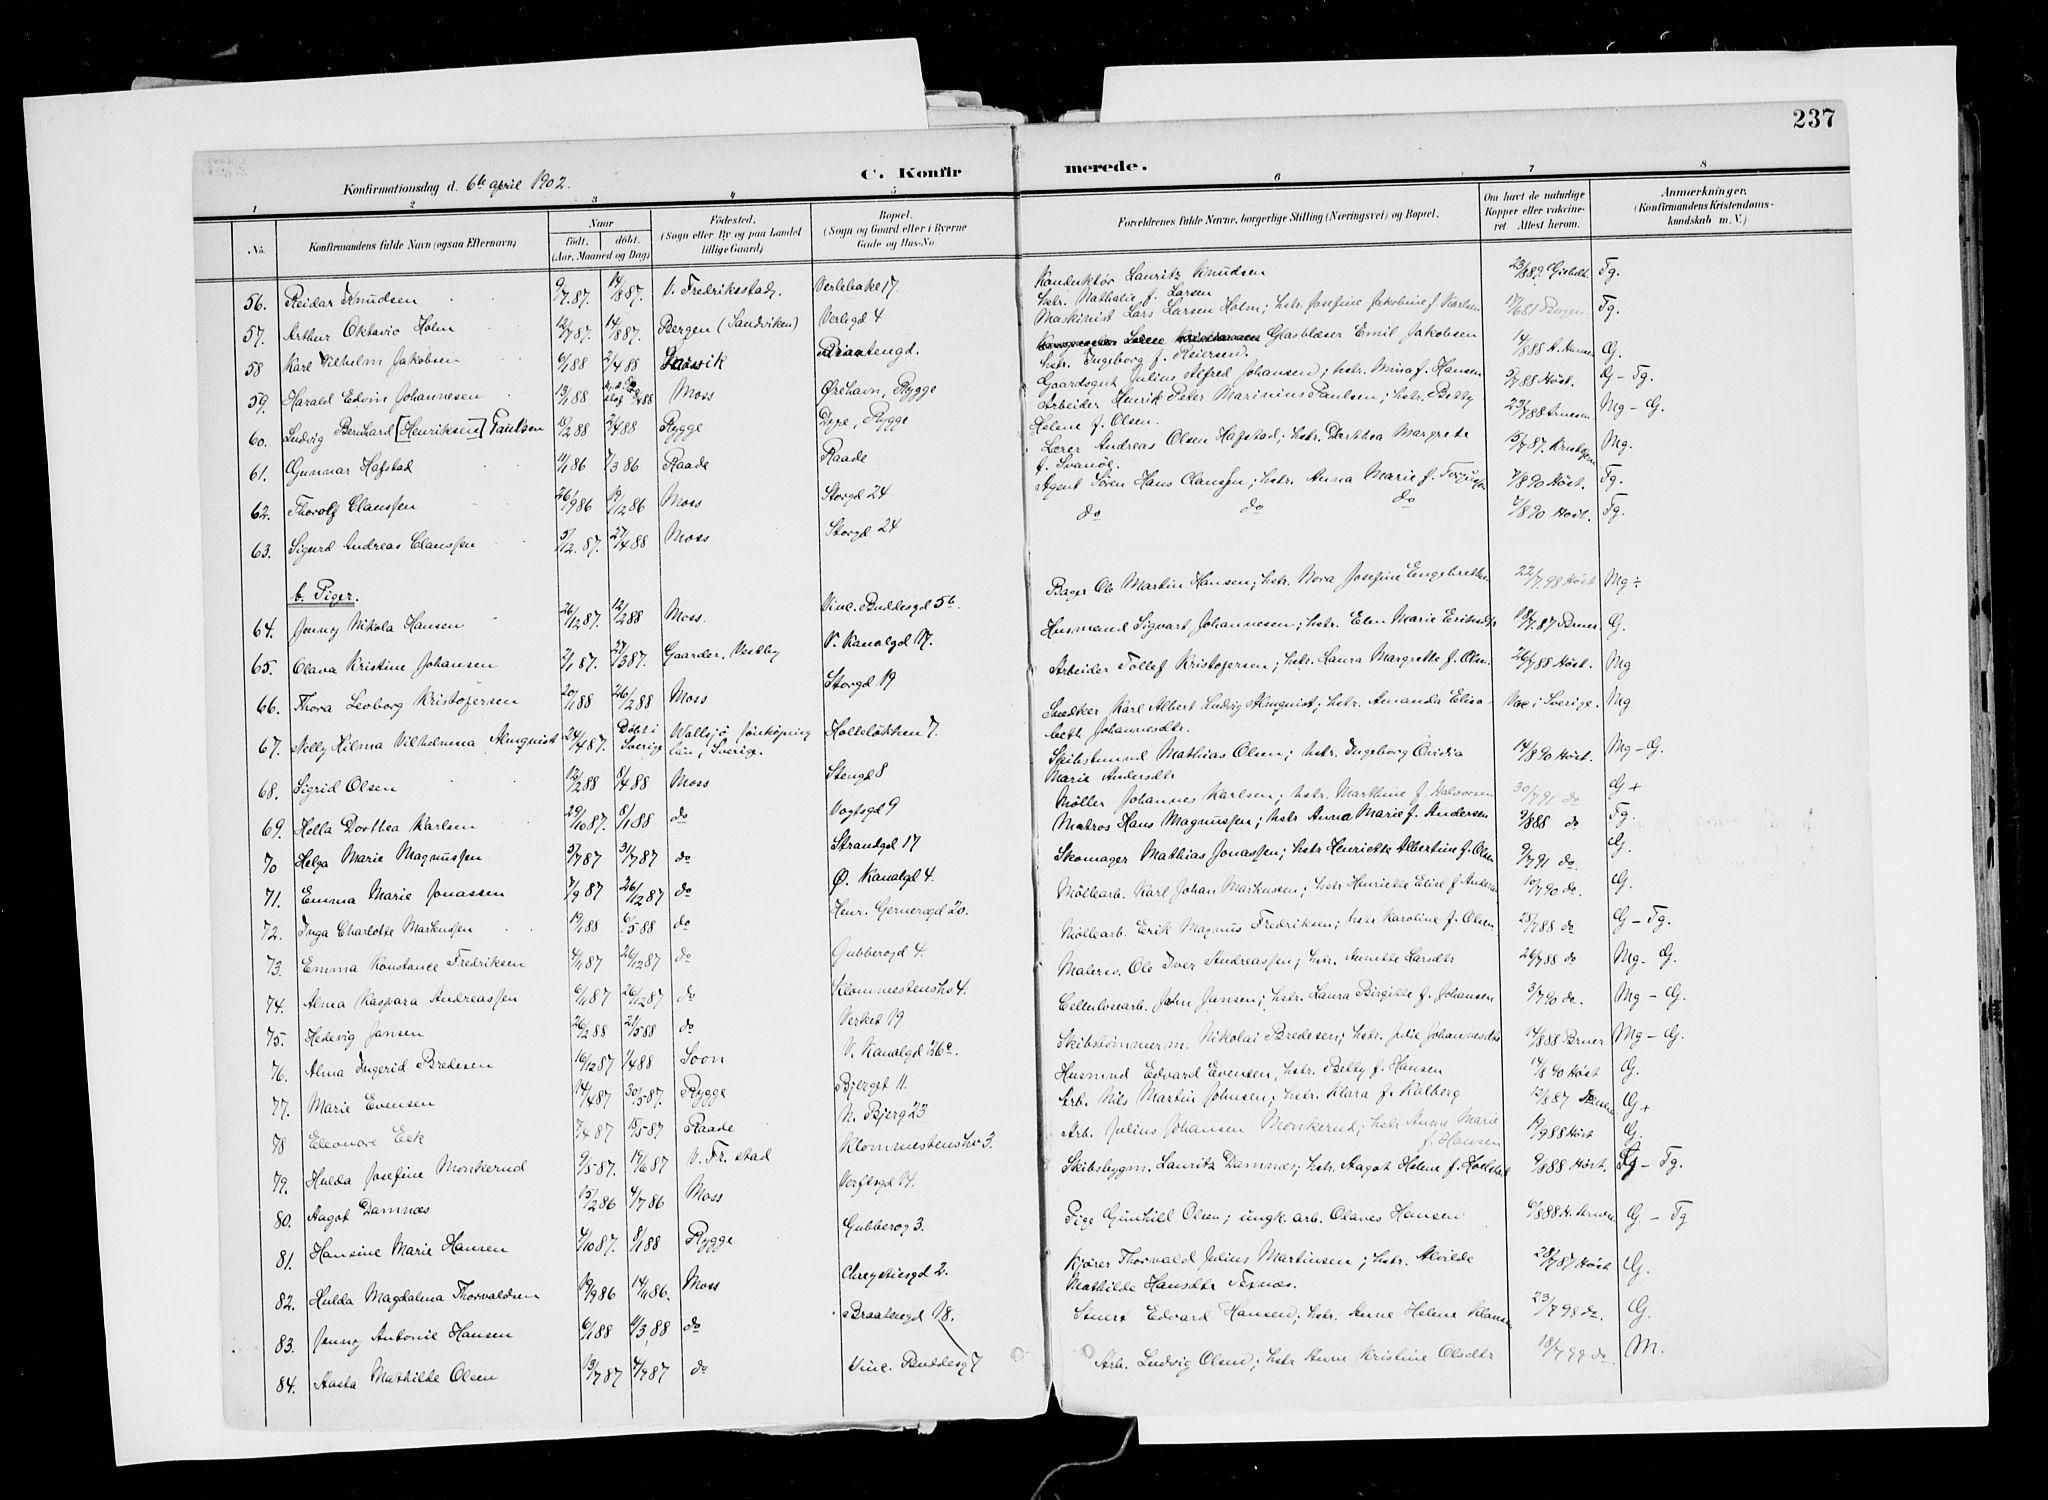 237
Konfirmationsdag d. 6te april 1902.
C. Konfirmerede.
1 2 3 4 5 6 7 8
No.
Konfirmandens fulde Navn (ogsaa Efternavn)
Naar født. døbt. (Aar, Maaned og Dag)
Fødested. (Sogn eller By og paa Landet tillige Gaard)
Bopæl. (Sogn og Gaard eller i Byerne Gade og Hus-No.
Forældrenes fulde Navne, borgerlige Stilling (Næringsvei) og Bopæl.
Om havt de naturlige Kopper eller vakcineret. Attest herom.
Anmærkninger. (Konfirmandens Kristendomskundskab m. V.)
56. Reidar Knudsen 9/7.87. 14/8 87. V. Fredriksstad. Verlebake 17. Konduktør Lauritz Knudsen hstr. Nathalie f. Larsen Tg.
57. Arthur Oktavio Holm 12/7 87. 14/8 87. Bergen (Sandviken) Verlegd 4 Maskinist Lars Larsen Holm; hstr. Josefine Jakobine f. Karlsen Bergen Tg.
58 Karl Vilhelm Jakobsen 6/1 88 2/4 88 Braatengd. Glasblæser Emil Jakobsen hstr. Ingeborg f. Reiersen. 14/8 88 G.
59. Harald Edvin Johannesen 13/1 88 Moss Ørehavn, Rygge Gaardsgut Julius Alfred Johansen; hstr. Mina f. Hansen 5/7 88 Høst. G – Tg.
60. Ludvig Bernhard [Henriksen] Paulsen 2/4 88 Rygge Dype, Rygge Arbeider Henrik Peter Marinius Paulsen; hstr. Betty Helene f. Olsen. 23/7 88 Arnesen Mg – G.
61. Gunnar Hafstad 11/1 86 7/3 86 Raade Raade Lærer Andreas Olsen Hafstad; hstr. Dorthea Margrete f. Svanøe. 15/7 87. Mg.
62. Thorolf Clausſen 26/9 86 19/12 86 Moss Storgd 24 Agent Søren Hans Clausſen; hstr. Anna Marie f. 7/8 90 Høst. Tg.
63. Sigurd Andreas Clausſen 5/12. 87. 27/4 88 Moss Storgd 24 do do do 7/8 90 Høst. Tg.
b. Piger.
64. Jenny Nikola Hansen 26/12 87. 12/2 88 Moss. Vinc. Buddesgd 5b. Bager Ole Martin Hansen; hstr. Nora Josefine Engebretsen 22/7 98 Høst Mg ÷
65. Olava Kristine Johansen 2/1 87. 27/3 87. Gaarder, Vestby V. Kanalgd 17. Husmand Sigvart Johannesen; hstr. Elen Marie 18/7 87 G.
66. Thora Levborg Kristofersen 20/1 88 26/2 88 Moss Storgd 19 Arbeider Tollef Kristofersen; hstr. Laura Margrethe f. Olsen 26/7 88 Høst. Mg
67. Nelly Hilma Vilhelmina Almqvist 24/4 87. Døbt i Sverige Wallsjö Jönköping län, Sverige. Holleløkken 7. Snedker Karl Albert Ludvig Almqvist; hstr. Amanda Elisabeth Johannesdtr. Vac i Sverige. Mg
68. Sigrid Olsen 12/2 88 8/4 88 Moss Stengd 8 Skibstmmd Mathias Olsen; hstr. Ingeborg Ovidia Marie Andersdtr 14/8 90 Høst. Mg – G.
69. Hella Dorthea Karlsen 29/10 87. 8/1 88 do Vogtsgd 9 Møller Johannes Karlsen; hstr. Marthine f. Halvorsen 30/7 91 do G +
70 Helga Marie Magnusſen 5/7 87 31/7 87 do Strandgd 17 Matros Hans Magnusſen; hstr Anna Marie f. Andersen 9/8 88 do Tg.
71. Emma Marie Jonassen 7/9 87 26/12 87 do Ø. Kanalgd 4. Skomager Mathias Jonasſen; hstr Henriette Albertine f. Olsen 9/7 91 do G.
72. Inga Charlotte Markusſen 19/1 88 6/5 88 do Henr. Gernersgd 20. Møllearb. Karl Johan Markussen; hstr Henriette Elise f. Andersen 10/7 90 do. G.
73. Emma Konstance Fredriksen 4/11 87 26/12 87 do Gubberogd 4. Møllearb. Erik Magnus Fredriksen; hstr Karoline f. Olsen 28/7 88 do G – Tg.
74. Alma Kaspara Andreasſen 6/11 87 26/12 87 do Klommestenshv 4. Malersv. Ole Iver Andreasſen; hstr. Annette Larsdtr 26/7 88 do Mg – G.
75. Hedevig Jansen 26/2 88 21/5 88 do Verket 19 Cellulosearb. John Jansen; hstr. Laura Birgitte f. Johansen 3/7 90 do. Mg – G.
76. Alma Ingerid Bredesen 16/12 87 1/4 88 Soon V. Kanalgd 26c. Skibstømmerm. Nikolai Bredesen; hstr. Julie Johannesdtr 14/8 88 Bruer Mg – G.
77. Marie Evensen 14/4 87 30/5 87. Rygge Bjerget 11. Husmnd Edvard Evensen, hstr. Betty f. Hansen 14/8 90 Høst G.
78 Eleonore Eek 7/4 87 15/5 87 Raade N. Bjerg 23 Arb. Nils Martin Johnsen; hstr. Klara f. Kalberg 12/8 87 G +
79. Hulda Josefine Monkerud 9/5 87. 17/6 87 V. Fr. stad Klommestenshv 3. Arb. Julius Johansen Monkerud; hstr Anna Marie f. Hansen 19/9 88 Høst G.
80. Aagot Damnæs 15/2 86 4/7 86 Moss Verftsgd 14. Skibsbygm. Lauritz Damnæs; hstr. Aagot Helene f. 9/8 88 Høst. Tg – Tg.
81. Hansine Marie Hansen 4/10 87. 8/1 88 Rygge Gubberog 3. Pige Gunhild Olsen; ungk. arb. Olaves Hansen 6/8 88 G. – Tg
82. Hulda Magdalena Thorvaldsen 19/9 86 14/11 86. Moss Chrystiesgd 2. Kjører Thorvald Julius Martinsen; hstr. Alvilde Mathilde Hansdtr Texnæs. 28/7 87 Høst G.
83. Jenny Antonie Hansen 6/1 88 11/3 88 do Braatengd 18. Stuert Edvard Hansen; hstr. Anne Helene Klausen 23/7 98 do. G.
84. Aasta Mathilde Olsen 13/7 87 4/9 87 do Vinc. Buddesg 7 Arb. Ludvig Olsen; hstr Anne Kristine Olsdtr 18/7 99 do. M.